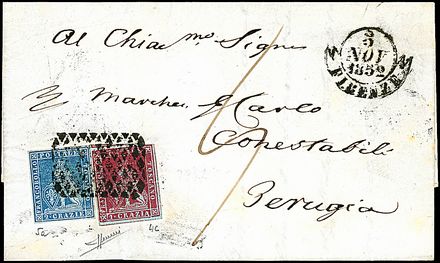 Al Chia.mo Signor
3
NOV
1852
FIRENZE
Il Marchese Carlo
Conestabili
Perugia
FRANCOBOLLO POSTALE TOSCANO
2·GRAZIE
FRANCOBOLLO POSTALE TOSCANO
1·GRAZIA
5a
4c